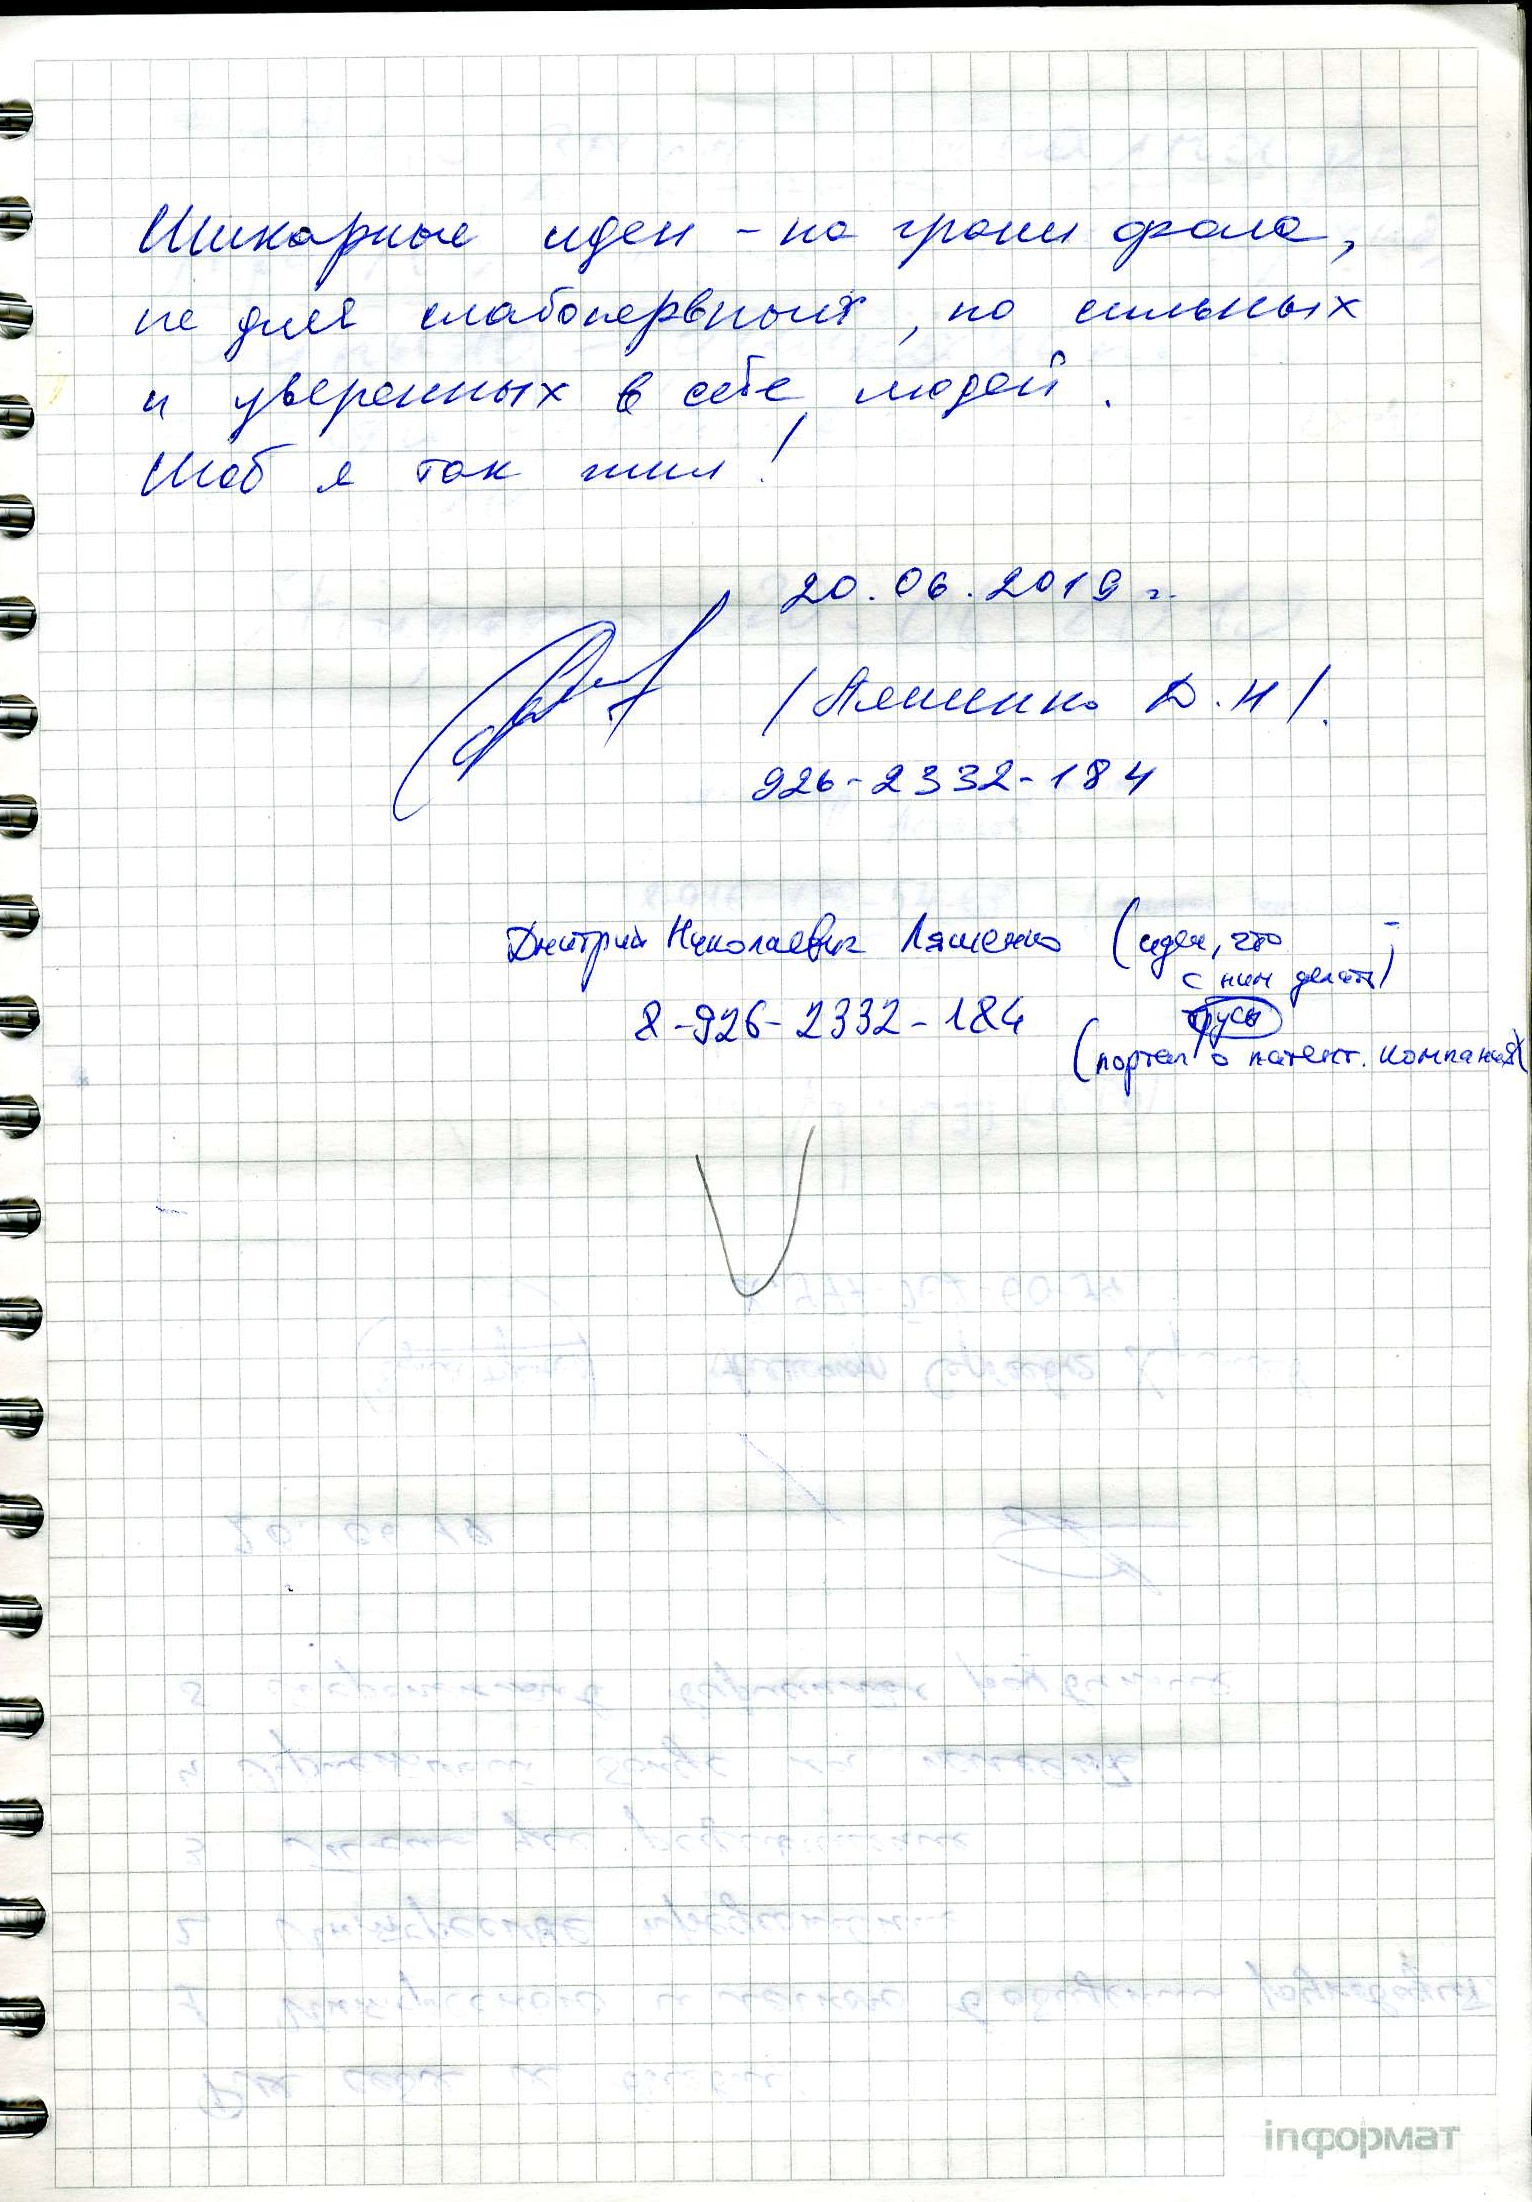 Шикарные идеи - на грани фола,
не для слабонервных, но сильных
и уверенных в себе людей.
Шоб я так жил!
20.06.2019 г.
/Ляшенко Д.Н/.
926-2332-184
Дмитрий Николаевич Ляшенко (идеи, что
с ним делать)
8-926-2332-184
(портал о патент. компаниях)
inформат